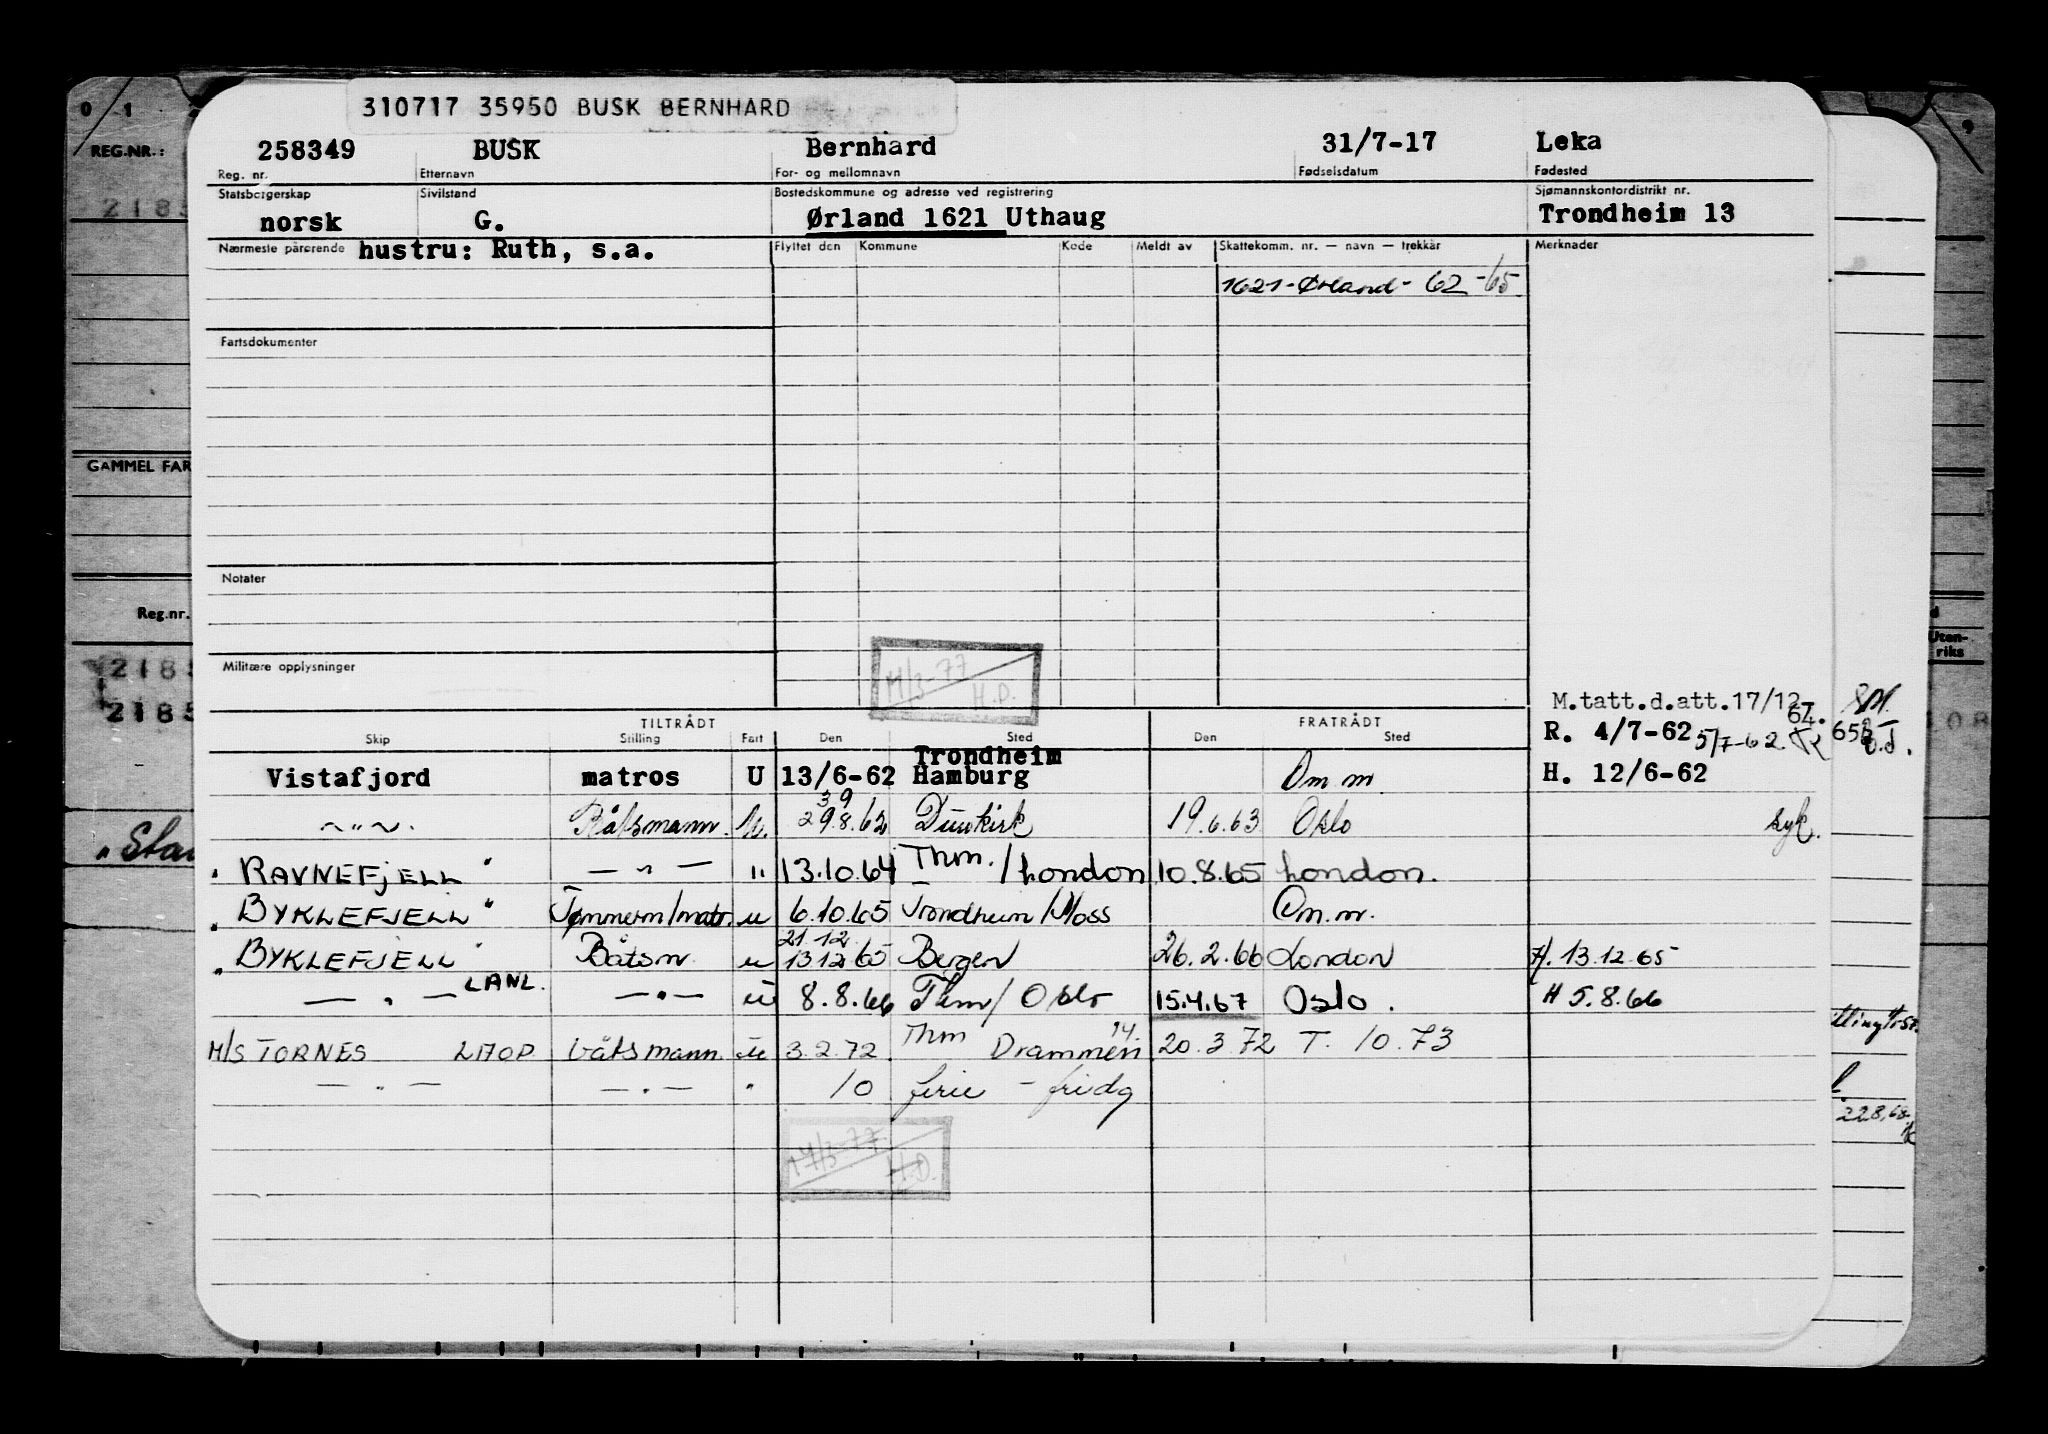 310717 35950 BUSK BERNHARD
0 1
REG.NR.:
258349 BUSK Bernhard 31/7-17 Leka
Reg. nr. Etternavn For- og mellomnavn Fødselsdatum Fødested
Statsborgerskap Sivilstand Bostedskommune og adresse ved registrering Sjømannskontordistrikt nr.
2185
norsk G. Ørland 1621 Uthaug Trondheim 13
Nærmeste pårørende hustru: Ruth, s.a. Flyttet den Kommune Kode Meldt av Skattekomm. nr. — navn — trekkår Merknader
1621-Ørland- 62 -65
Fartsdokumenter
GAMMEL FAR
Notater
Reg.nr.
Uten-
riks
Militære opplysninger
2185
14/3-77
H.D.
M.tatt.d.att.17/12
64.
2185
TILTRÅDT FRATRÅDT
R. 4/7-62 5/7-62.
Skip Stilling Fart Den Sted Den Sted
Trondheim
Vistafjord matros U 13/6-62 Hamburg Om m. H. 12/6-62
39
~"~. Båtsmann. U. 29.8.62 Dunkirk 19.6.63 Oslo syk.
"Sta
"RAVNEFJELL" — " — " 13.10.64 Thm. / London 10.8.65 London.
"BYKLEFJELL" Tømmerm/matr. u 6.10.65 Trondheim/Moss Om.m.
21 12
"BYKLEFJELL" Båtsm. u 13 12 65 Bergen 26.2.66 London H. 13.12.65
— " — LANL. — " — u 8.8.66 Thm/ Oslo 15.4.67 Oslo. H 5.8.66
14.
M/S TORNES LHOP båtsmann. u 3.2.72 Thm Drammen 20.3.72 T. 10.73
— " — — " — " 10 ferie - fridg
228,68
14/3-77.
H.D.